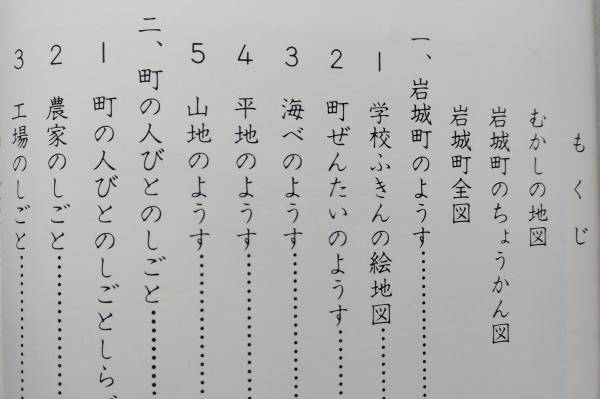 もくじ
むかしの地図
岩城町のちょうかん図
岩城町全図
一、岩城町のようす…………
1 学校ふきんの絵地図……
2 町ぜんたいのようす……
3 海べのようす…………
4 平地のようす…………
5 山地のようす…………
二、町の人びとのしごと………
1 町の人びとのしごとしらべ
2 農家のしごと…………
3 工場のしごと…………